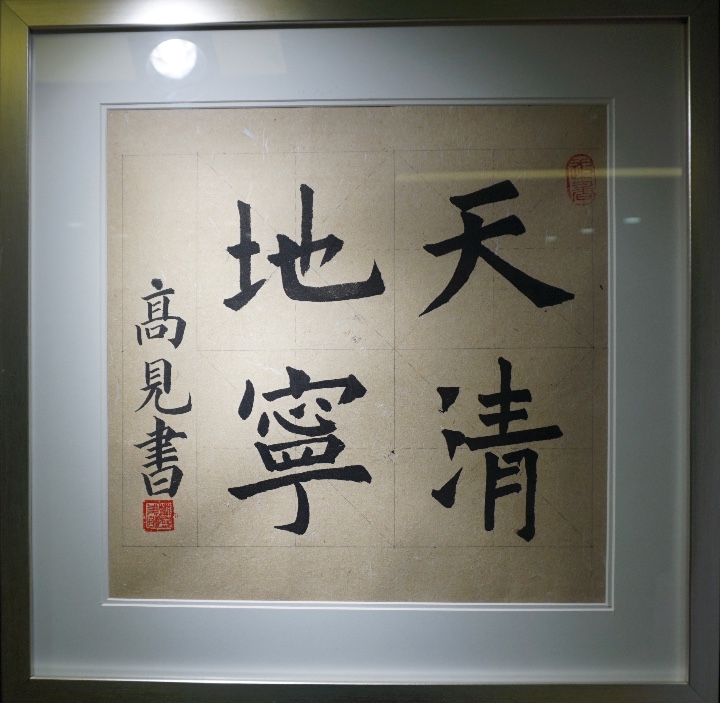 天清
地寧
髙見書